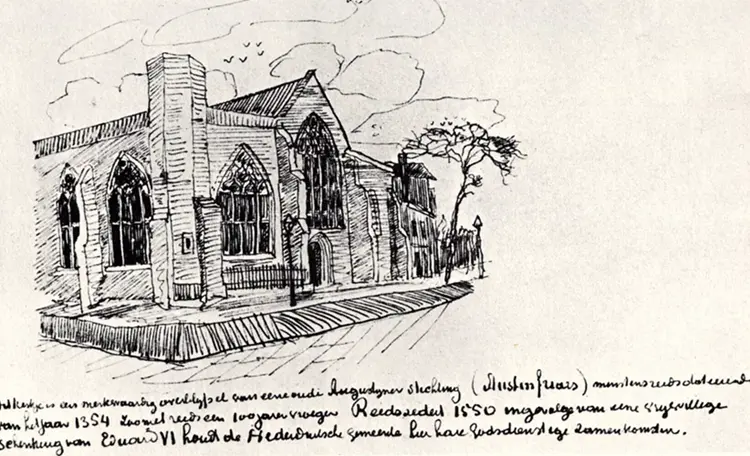 Dit kerkje is een merkwaardig overblijfsel van eene oude Augustyner stichting (Austinfriars) minstens reeds dateerende
van het jaar 1354 zoo niet reeds een 100 jaren vroeger Reeds sedert 1550 ingevolge van eene vrijwillige
Schenking van Eduard VI houdt de Nederduitsche gemeente hier hare Godsdienstige zamenkomsten.